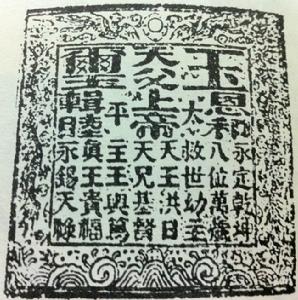 玉
恩和
永定乾坤
八位萬歲
太
救世幼主
天王洪日
天父上帝
天兄基督
平
主王輿篤
璽
輯睦
真王貴福
永錫天祿